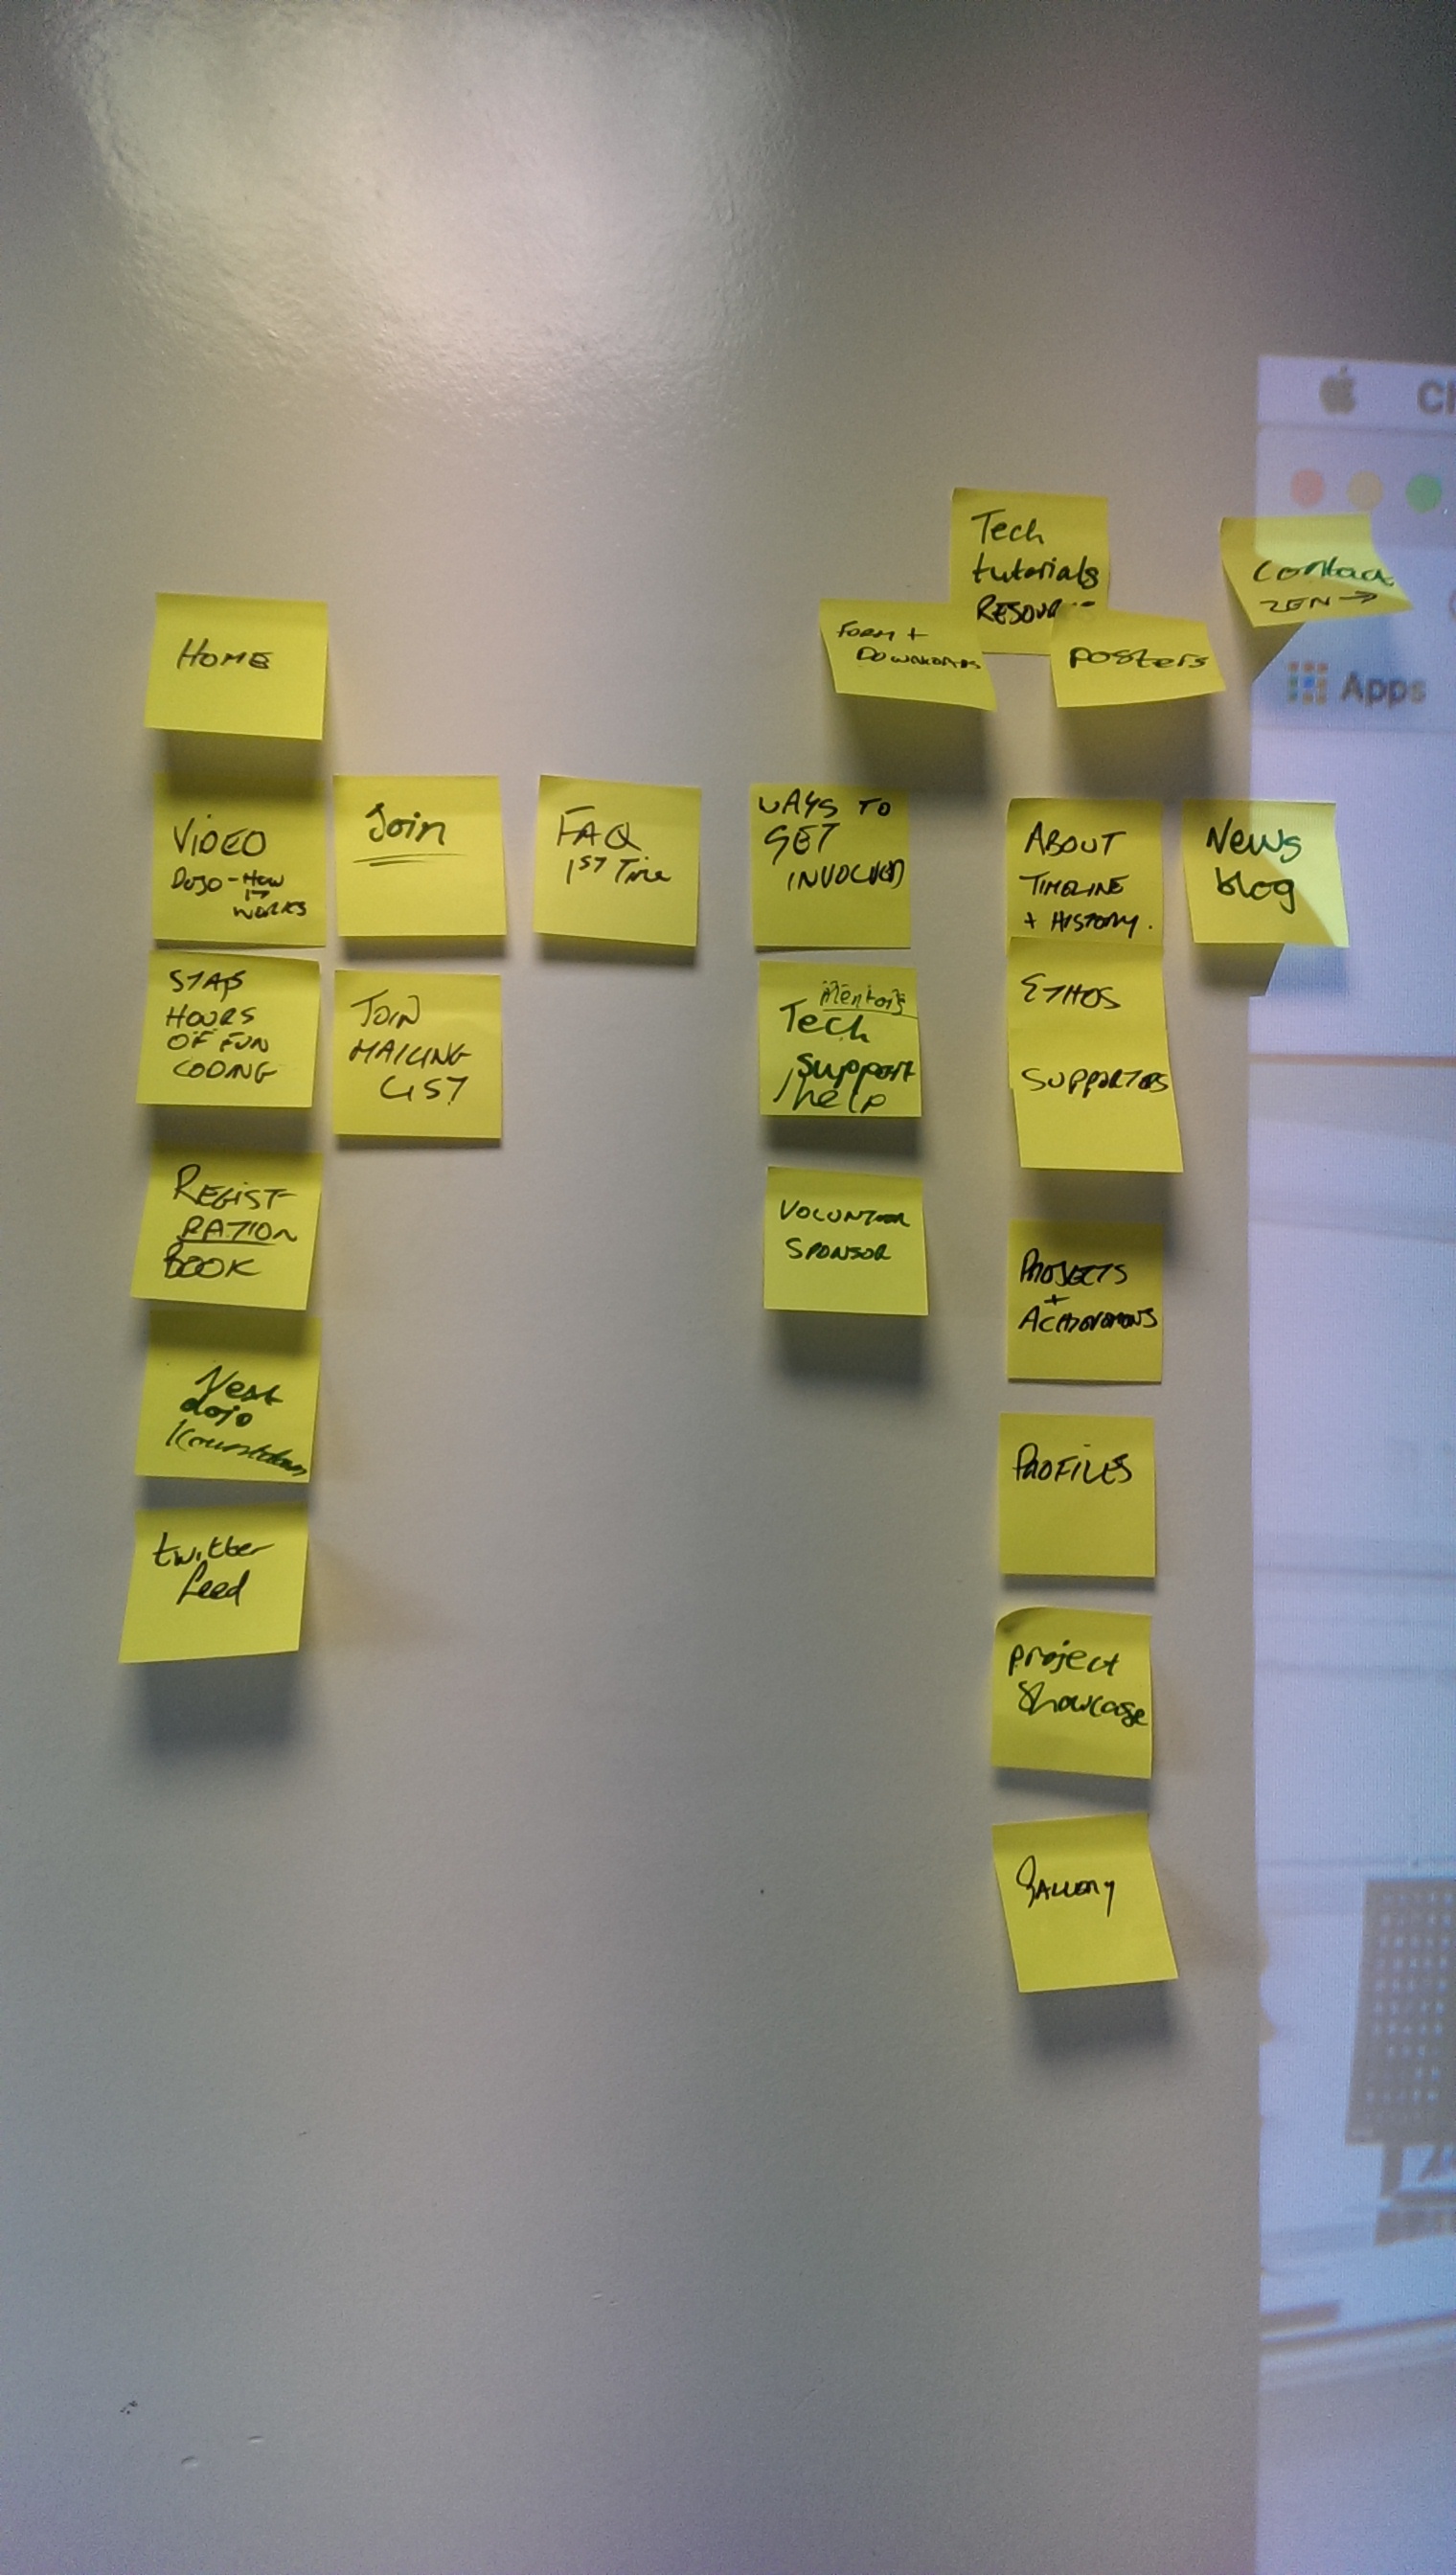 HOME
VIDEO
DOJO - HOW
IT
WORKS
STATS
HOURS
OF FUN
CODING
REGIST-
RATION
BOOK
Next
dojo
Kountdown
twitter
feed
Join
JOIN
MAILING
LIST
FAQ
1ST Time
WAYS TO
GET
INVOLVED
Mentors
Tech
Support
/help
VOLUNTEER
SPONSOR
Tech
tutorials
RESOUR
FORM +
DOWNLOADS
posters
ABOUT
TIMELINE
+ HISTORY.
ETHOS
SUPPORTERS
PROJECTS
+
PROFILES
project
Showcase
GALLERY
Contact
ZEN →
News
blog
Apps